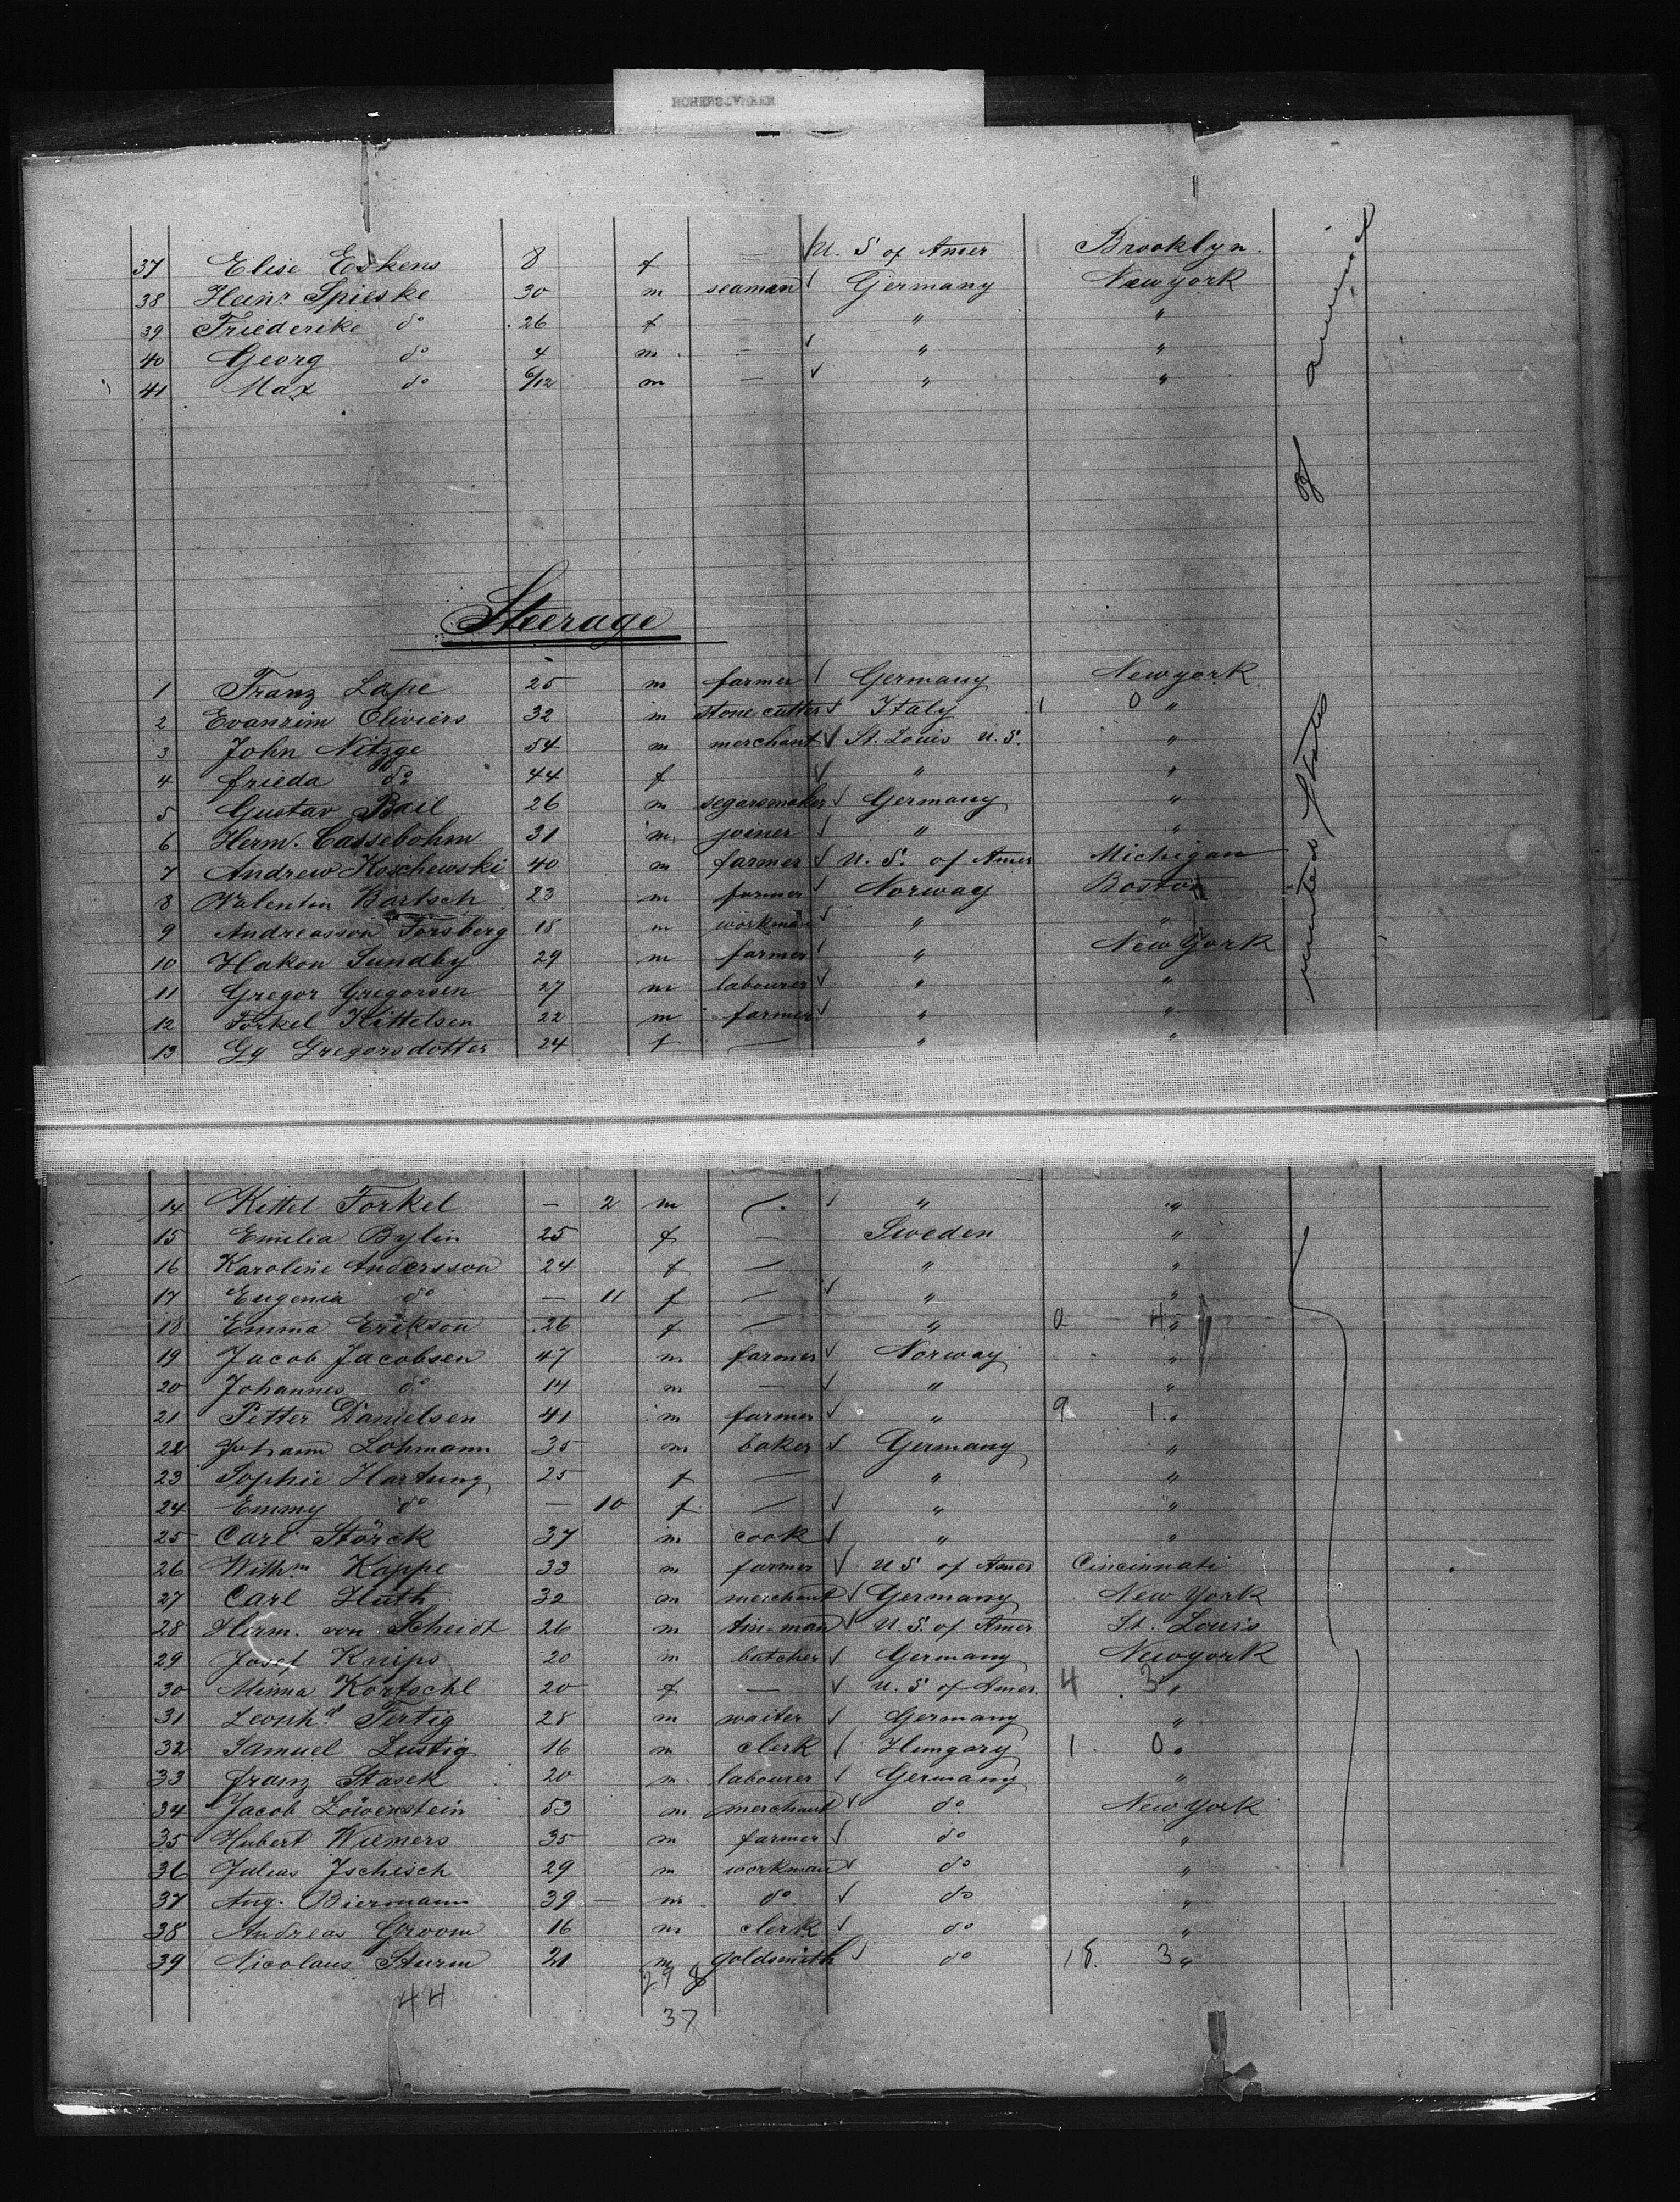 37 Elise Eskens 8 f — U. S of Amer Brooklyn.
38 Heinr Spieske 30 m seaman Germany Newyork
39 Friederike do 26 f — " "
40 Georg do 4 m — " "
41 Max do 6/12 m — " "
Steerage
1 Franz Lape 25 m farmer Germany Newyork
2 Evanzim Oliviers 32 m stone cutter Italy 1 0 "
3 John Nitzge 54 m merchant St. Louis U. S. "
4 frieda do 44 f " "
5 Gustav Bail 26 m segarsmaker Germany "
6 Herm. Cassebohm 31 m joiner " "
7 Andrew Koschewski 40 m farmer U. S. of Amer Michigan
8 Valentin Bartsch 23 m farmer Norway Boston
9 Andreasson Forsberg 18 m workman " "
10 Hakon Sundby 29 m farmer " New York
11 Gregor Gregorsen 27 m labourer " "
12 Torkel Kittelsen 22 m farmer " "
13 Gy Gregorsdotter 24 f — " "
14 Kittel Torkel — 2 m — " "
15 Emilia Bylin 25 f — Sweden "
16 Karoline Andersson 24 f — " "
17 Eugenia do — 11 f — " "
18 Emma Erikson 26 f — " 0 4 "
19 Jacob Jacobsen 47 m farmer Norway "
20 Johannes do 14 m — " "
21 Petter Danielsen 41 m farmer " 9 1 "
22 Johann Lohmann 35 m baker Germany "
23 Sophie Hartung 25 f — " "
24 Emmy do — 10 f — " "
25 Carl Störck 37 m cook " "
26 Wilhm Kappe 33 m farmer U S of Amer Cincinnati
27 Carl Huth 32 m merchant Germany New York
28 Herm. von Scheidt 26 m tin-man U. S. of Amer St. Louis
29 Josef Knips 20 m butcher Germany Newyork
30 Minna Kortschl 20 f — U. S of Amer. 4 3 "
31 Leonhd Fertig 28 m waiter Germany "
32 Samuel Lustig 16 m clerk Hungary 1 0 "
33 franz Stasek 20 m labourer Germany "
34 Jacob Löwenstein 53 m merchant do New York
35 Hubert Wiemers 35 m farmer do "
36 Julius Jschisch 29 m workman do "
37 Aug. Biermann 39 — m do do "
38 Andreas Groom 16 m clerk do "
39 Nicolaus Sturm 21 m goldsmith do 18. 3 "
44 29 8
37
united States of america